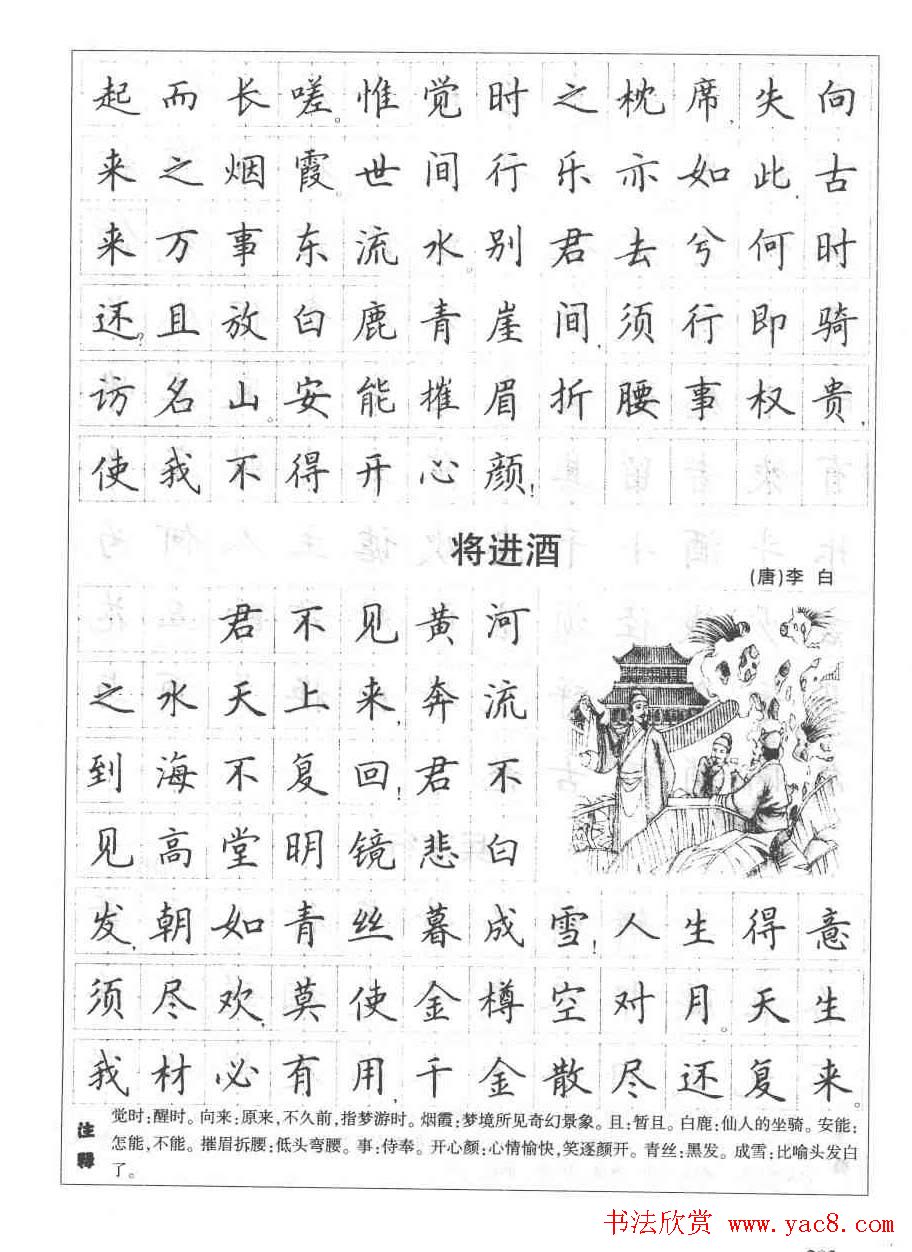 起而长嗟。惟觉时之枕席,失向
来之烟霞。世间行乐亦如此,古
来万事东流水。别君去兮何时
还?且放白鹿青崖间,须行即骑
访名山。安能摧眉折腰事权贵,
使我不得开心颜!
将进酒
(唐)李 白
君不见黄河
之水天上来,奔流
到海不复回!君不
见高堂明镜悲白
发,朝如青丝暮成雪!人生得意
须尽欢,莫使金樽空对月。天生
我材必有用,千金散尽还复来。
注释
觉时:醒时。向来:原来,不久前,指梦游时。烟霞:梦境所见奇幻景象。且:暂且。白鹿:仙人的坐骑。安能:
怎能,不能。摧眉拆腰:低头弯腰。事:侍奉。开心颜:心情愉快,笑逐颜开。青丝:黑发。成雪:比喻头发白
了。
书法欣赏 www.yac8.com